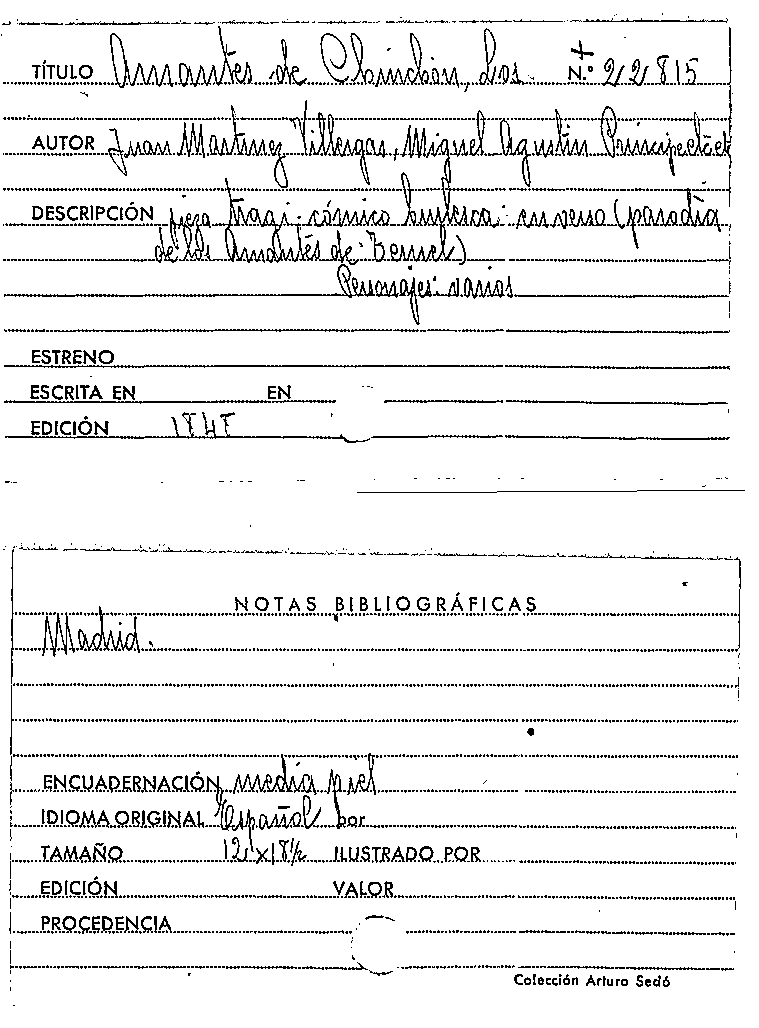 TÍTULO Amantes de Chinchón, Los. N.º 22815
AUTOR Juan Martinez Villergas, Miguel Agustin Principe etcet
DESCRIPCIÓN pieza tragi-cómico burlesca: en verso (parodia
de los Amantes de Teruel)
Personajes: varios
ESTRENO
ESCRITA EN EN
EDICIÓN 1848
NOTAS BIBLIOGRÁFICAS
Madrid.
ENCUADERNACIÓN media piel
IDIOMA ORIGINAL Español por
TAMAÑO 12 x 18½ ILUSTRADO POR
EDICIÓN VALOR
PROCEDENCIA
Colección Arturo Sedó